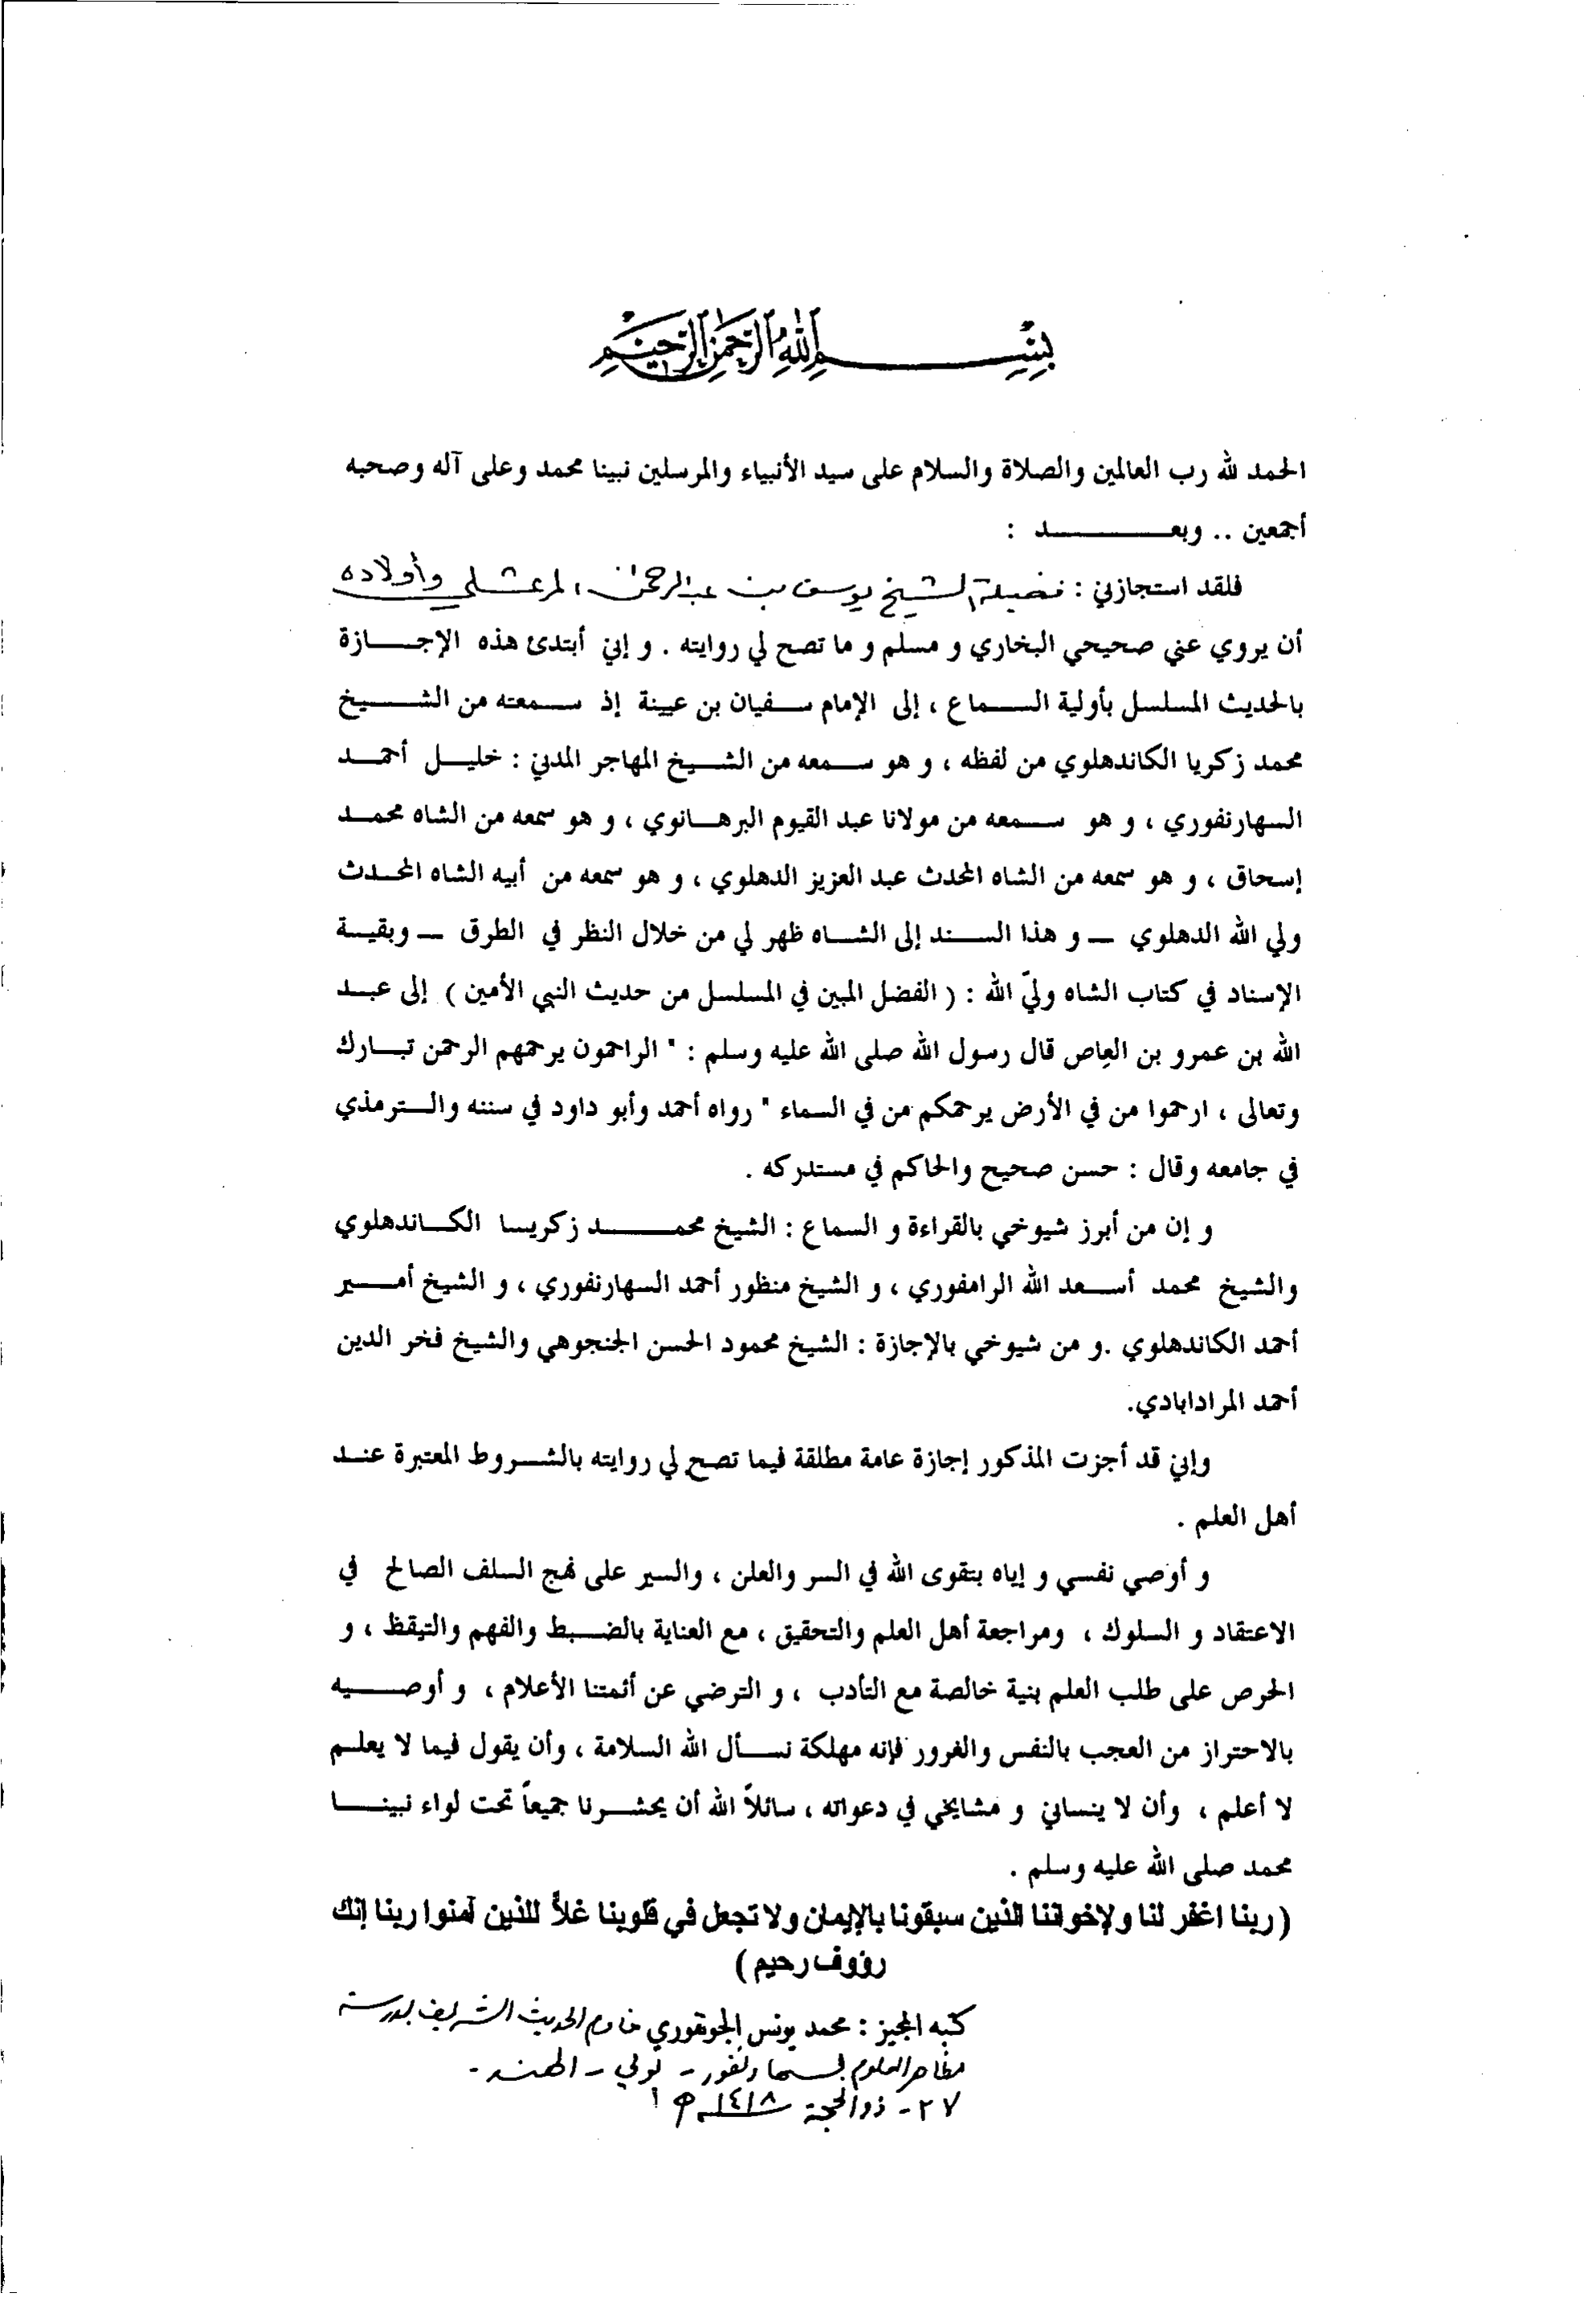 بسم الله الرحمن الرحيم
الحمد لله رب العالمين والصلاة والسلام على سيد الأنبياء والمرسلين نبينا محمد وعلى آله وصحبه
أجمعين .. وبعد :
فلقد استجازني : فضيلة الشيخ يوسف بن عبد الرحمن المرعشلي وأولاده
أن يروي عني صحيحي البخاري و مسلم و ما تصح لي روايته . و إني أبتدئ هذه الإجازة
بالحديث المسلسل بأولية السماع ، إلى الإمام سفيان بن عيينة إذ سمعته من الشيخ
محمد زكريا الكاندهلوي من لفظه ، و هو سمعه من الشيخ المهاجر المدني : خليل أحمد
السهارنفوري ، و هو سمعه من مولانا عبد القيوم البرهانوي ، و هو سمعه من الشاه محمد
إسحاق ، و هو سمعه من الشاه المحدث عبد العزيز الدهلوي ، و هو سمعه من أبيه الشاه المحدث
ولي الله الدهلوي – و هذا السند إلى الشاه ظهر لي من خلال النظر في الطرق – وبقية
الإسناد في كتاب الشاه وليّ الله : ( الفضل المبين في المسلسل من حديث النبي الأمين ) إلى عبد
الله بن عمرو بن العاص قال رسول الله صلى الله عليه وسلم : " الراحمون يرحمهم الرحمن تبارك
وتعالى ، ارحموا من في الأرض يرحمكم من في السماء " رواه أحمد وأبو داود في سننه والترمذي
في جامعه وقال : حسن صحيح والحاكم في مستدركه .
و إن من أبرز شيوخي بالقراءة و السماع : الشيخ محمد زكريسا الكاندهلوي
والشيخ محمد أسعد الله الرامفوري ، و الشيخ منظور أحمد السهارنفوري ، و الشيخ أمير
أحمد الكاندهلوي .و من شيوخي بالإجازة : الشيخ محمود الحسن الجنجوهي والشيخ فخر الدين
أحمد المرادابادي.
وإني قد أجزت المذكور إجازة عامة مطلقة فيما تصح لي روايته بالشروط المعتبرة عند
أهل العلم .
و أوصي نفسي و إياه بتقوى الله في السر والعلن ، والسير على نهج السلف الصالح في
الاعتقاد و السلوك ، ومراجعة أهل العلم والتحقيق ، مع العناية بالضبط والفهم والتيقظ ، و
الحرص على طلب العلم بنية خالصة مع التأدب ، و الترضي عن أئمتنا الأعلام ، و أوصيه
بالاحتراز من العجب بالنفس والغرور فإنه مهلكة نسأل الله السلامة ، وأن يقول فيما لا يعلم
لا أعلم ، وأن لا ينساني و مشايخي في دعواته ، سائلاً الله أن يحشرنا جميعاً تحت لواء نبينا
محمد صلى الله عليه وسلم .
(ربنا اغفر لنا ولإخواننا الذين سبقونا بالإيمان ولا تجعل في قلوبنا غلاً للذين آمنوا ربنا إنك
رؤوف رحيم)
كتبه المجيز : محمد يونس الجونفوري خادم الحديث الشريف بمدرسة
مظاهر العلوم بسهارنفور - يوبي - الهند -
٢٧ - ذو الحجة ١٤١٨ هـ